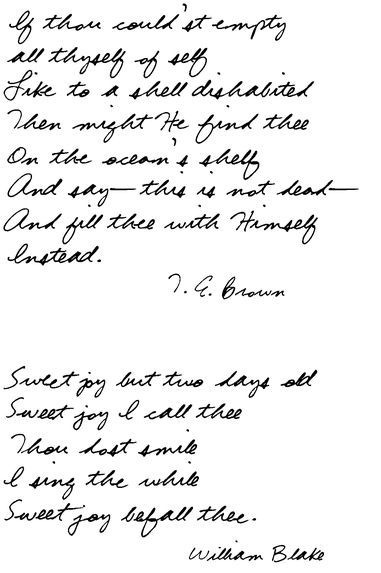 If thou could'st empty
all thyself of self
Like to a shell dishabited
Then might He find thee
On the ocean's shelf
And say—this is not dead—
And fill thee with Himself
Instead.
T. E. Brown
Sweet joy but two days old
Sweet joy I call thee
Thou dost smile
I sing the while
Sweet joy befall thee.
William Blake